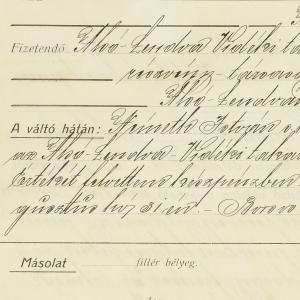 Fizetendő Alsó-Lendva Vidéki ta
részvény-társas
Alsó-Lendvá
A váltó hátán: Németh István
az Alsó-Lendva-Vidéki taka
Értékét felvettem készpénzben
gusztus hó 31 én. –
Másolat fillér bélyeg.